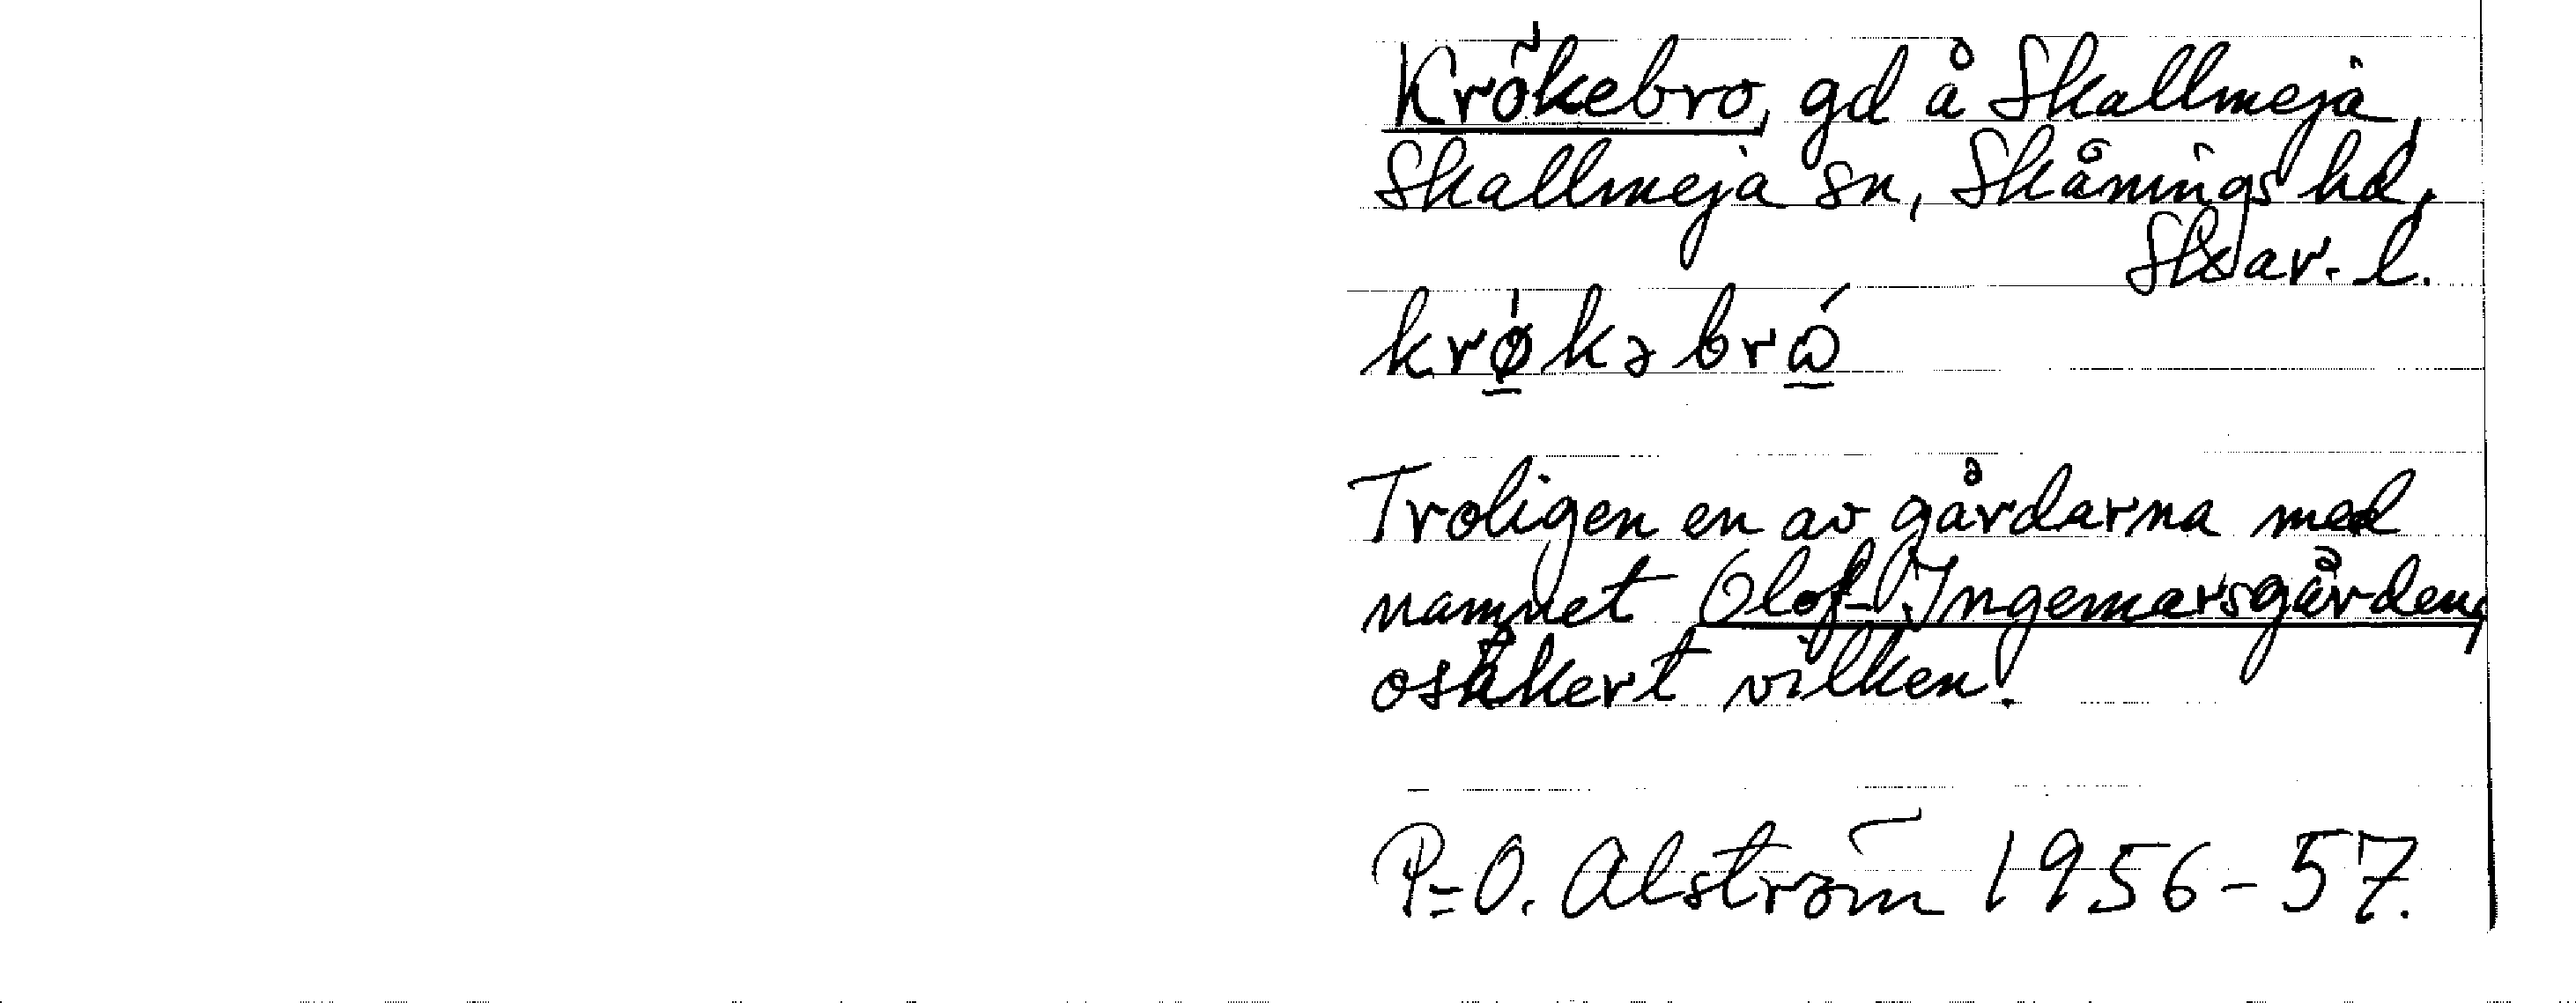 Krökebro, gd å Skallmeja,
Skallmeja sn, Skånings hd,
Skar. l.
krǿ̲kəbrώ̲
Troligen en av gårdarna med
namnet Olof-Ingemarsgården,
osäkert vilken.
P-O. Alström 1956-57.